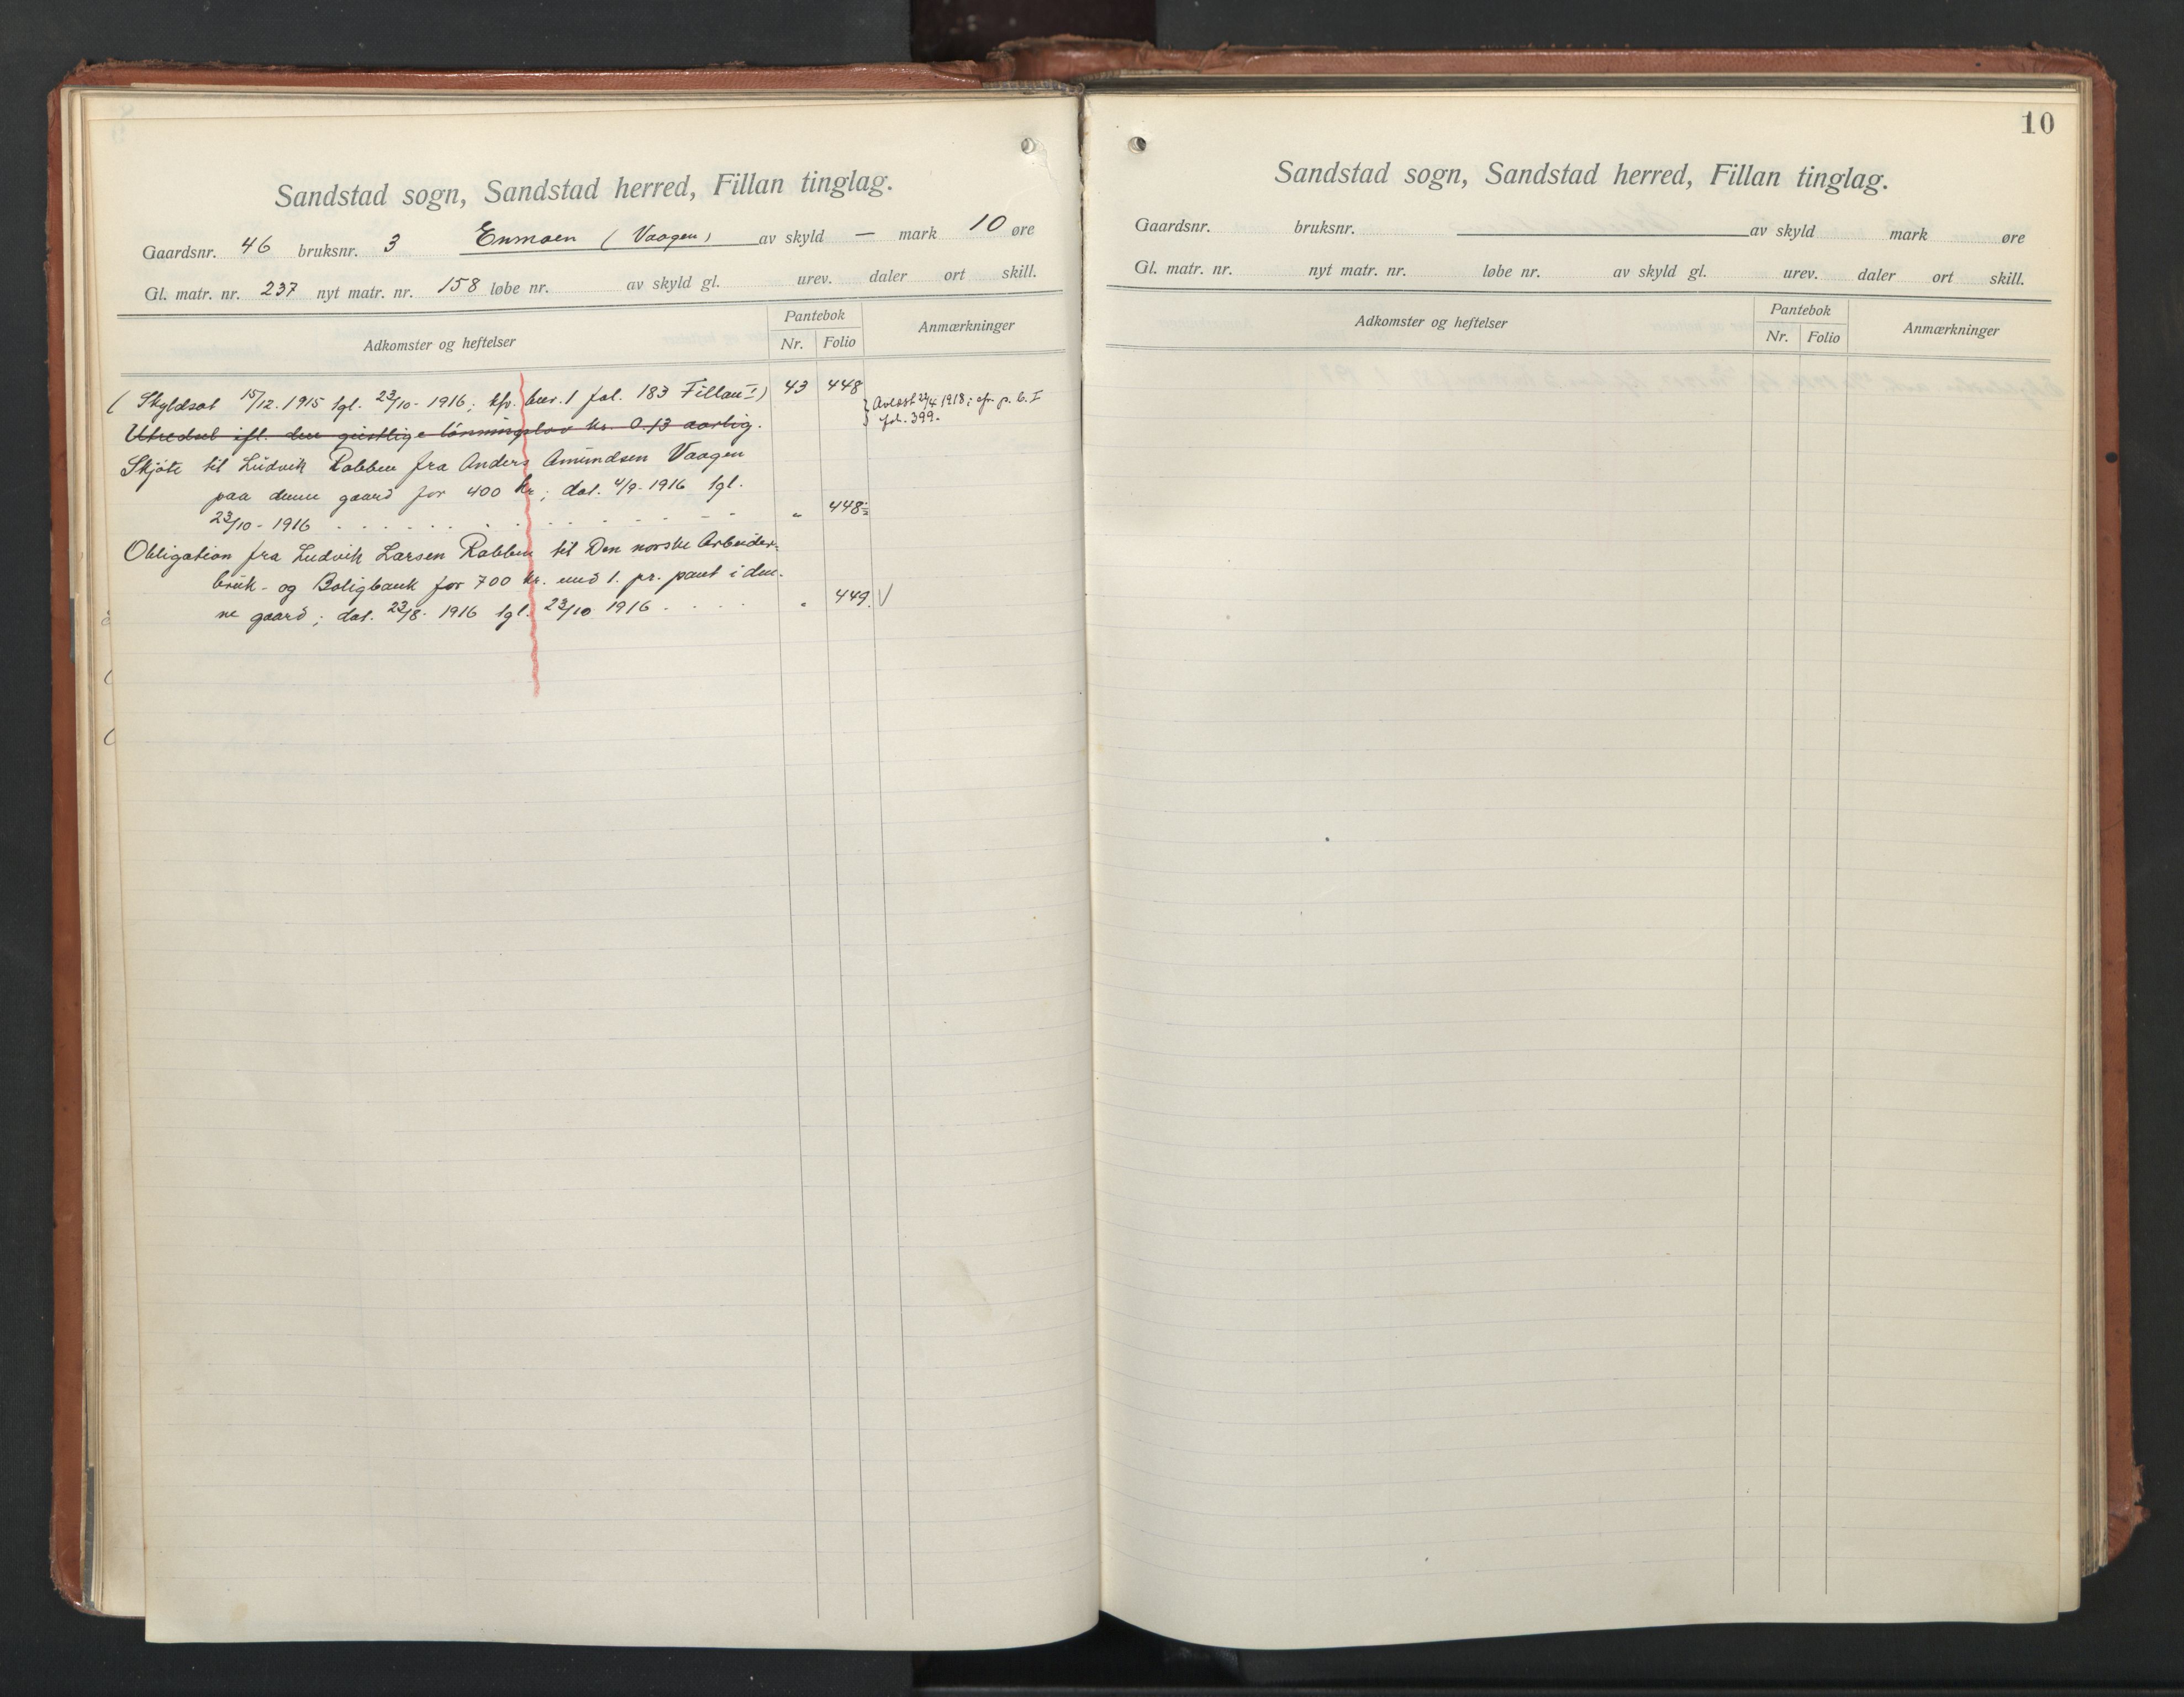 Sandstad sogn, Sandstad herred, Fillan tinglag.
Gaardsnr. 46 bruksnr. 3 Enmoen (Vaagen) av skyld — mark 10 øre
Gl. matr. nr. 237 nyt matr. nr. 158 løbe nr. av skyld gl. urev. daler ort skill.
Adkomster og heftelser Pantebok Nr. Folio Anmærkninger
(Skyldsat 15/12. 1915 tgl. 23/10 - 1916; kfr. bur. 1 fol. 183 Fillan I) 43 448
Utredsel ifl. den geistlige lønningslov kr. 0.13 aarlig. } Avløst 22/4 1918; cfr. p. b. I
fol. 399.
Skjøte til Ludvik Rabben fra Anders Amundsen Vaagen
paa denne gaard for 400 kr; dat. 4/9 - 1916 tgl.
23/10 - 1916 . . . . . . . . " 448½
Obligation fra Ludvik Larsen Rabben til Den norske Arbeider-
bruk- og Boligbank for 700 kr. med 1. pr. pant i den-
ne gaard; dat. 23/8 - 1916 tgl. 23/10 1916 . . . . " 449. V
10
Sandstad sogn, Sandstad herred, Fillan tinglag.
Gaardsnr. bruksnr. av skyld mark øre
Gl. matr. nr. nyt matr. nr. løbe nr. av skyld gl. urev. daler ort skill.
Adkomster og heftelser Pantebok Nr. Folio Anmærkninger